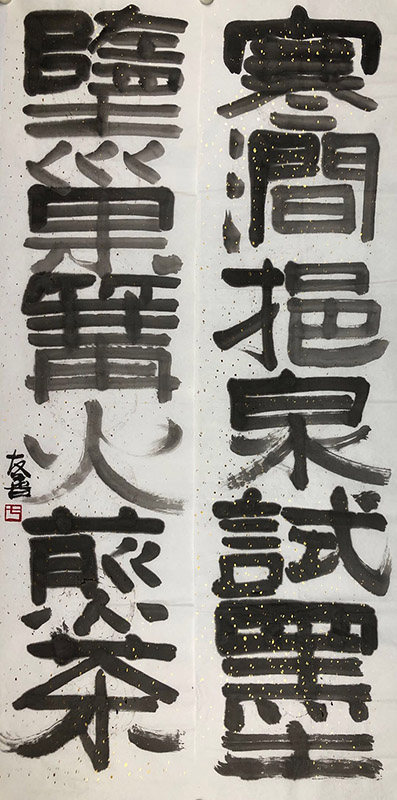 寒澗挹泉試墨
墮巢篝火煎茶
友善